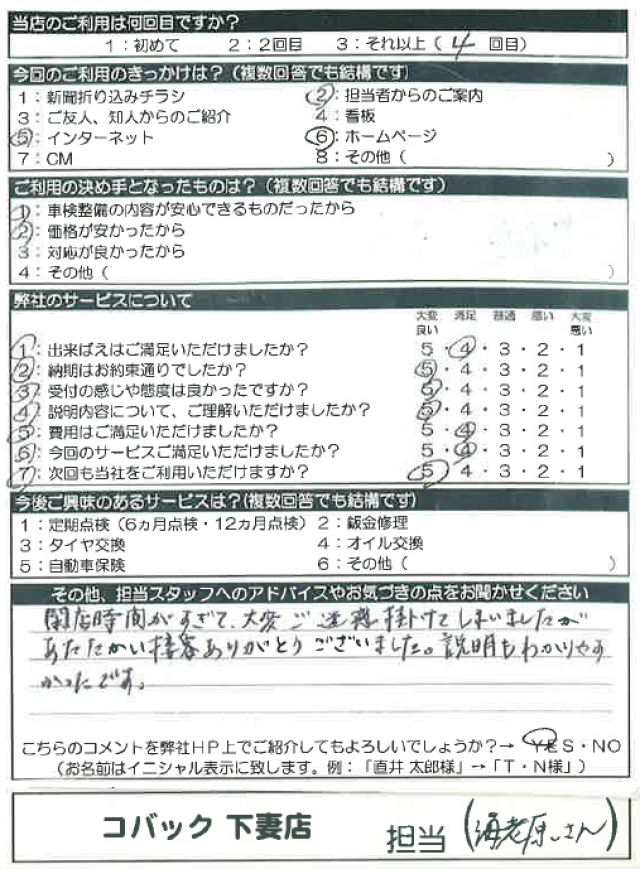 当店のご利用は何回目ですか？
1：初めて　2：2回目　3：それ以上（ 4 回目）
今回のご利用のきっかけは？（複数回答でも結構です）
1：新聞折り込みチラシ　2：担当者からのご案内
3：ご友人、知人からのご紹介　4：看板
5：インターネット　6：ホームページ
7：CM　8：その他（　）
ご利用の決め手となったものは？（複数回答でも結構です）
1：車検整備の内容が安心できるものだったから
2：価格が安かったから
3：対応が良かったから
4：その他（　）
弊社のサービスについて
大変良い　満足　普通　悪い　大変悪い
1：出来ばえはご満足いただけましたか？　5・4・3・2・1
2：納期はお約束通りでしたか？　5・4・3・2・1
3：受付の感じや態度は良かったですか？　5・4・3・2・1
4：説明内容について、ご理解いただけましたか？　5・4・3・2・1
5：費用はご満足いただけましたか？　5・4・3・2・1
6：今回のサービスご満足いただけましたか？　5・4・3・2・1
7：次回も当社をご利用いただけますか？　5・4・3・2・1
今後ご興味のあるサービスは？（複数回答でも結構です）
1：定期点検（6ヵ月点検・12ヵ月点検）　2：鈑金修理
3：タイヤ交換　4：オイル交換
5：自動車保険　6：その他（　）
その他、担当スタッフへのアドバイスやお気づきの点をお聞かせください
閉店時間がすぎて、大変ご迷惑掛けてしまいましたが
あたたかい接客ありがとうございました。説明もわかりやす
かったです。
こちらのコメントを弊社HP上でご紹介してもよろしいでしょうか？→ YES・NO
（お名前はイニシャル表示に致します。例：「直井 太郎様」→「T・N様」）
コバック 下妻店　担当（海老原さん）